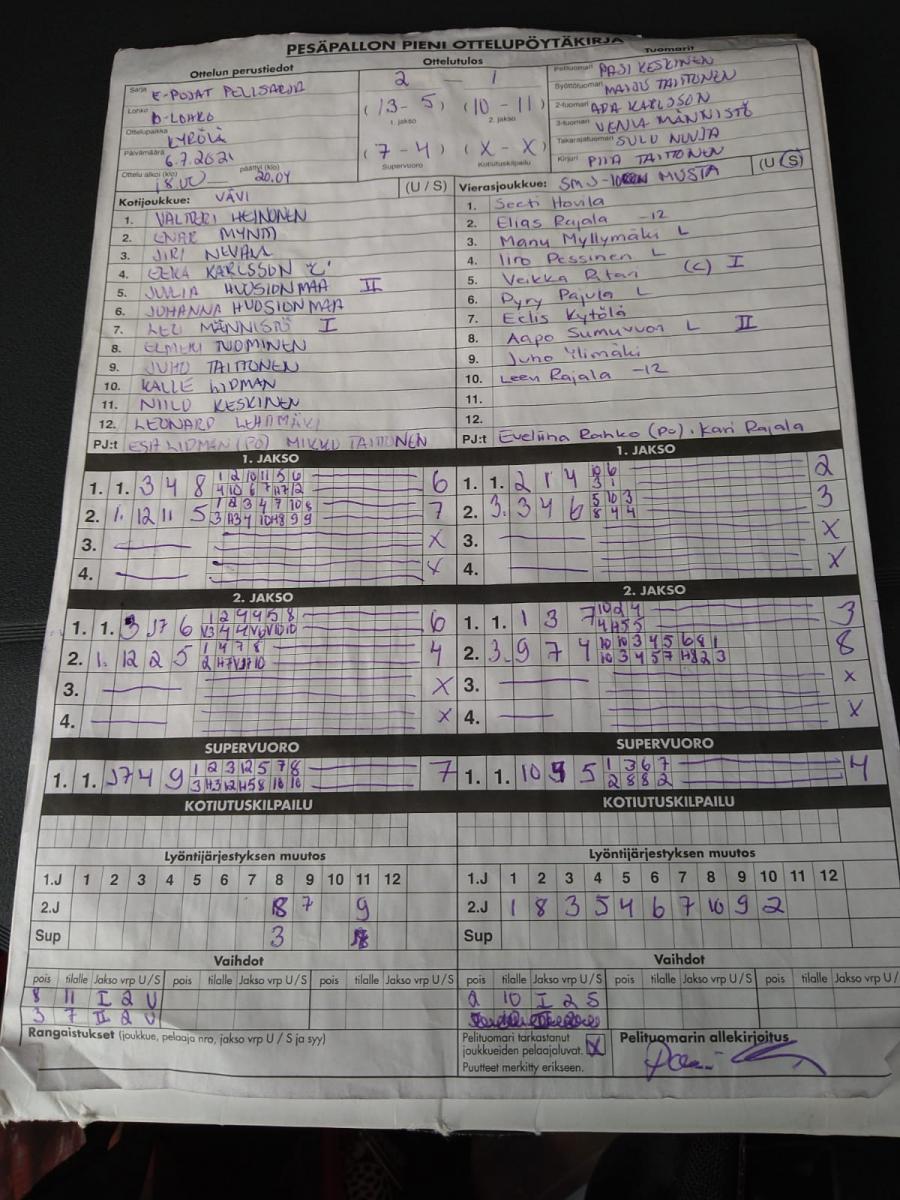 PESÄPALLON PIENI OTTELUPÖYTÄKIRJA
Ottelun perustiedot
Sarja E-POJAT PELISARJA
Lohko D-LOHKO
Ottelupaikka KYRÖLÄ
Päivämäärä 6.7.2021
Ottelu alkoi (klo) 18.00 – päättyi (klo) 20.04
Ottelutulos
2 — 1
(13 - 5) (10 - 11)
1. jakso 2. jakso
(7 - 4) (X - X)
Supervuoro Kotiutuskilpailu
Tuomarit
Pelituomari PASI KESKINEN
Syöttötuomari MAIJU TAITTONEN
2-tuomari ADA KARLSSON
3-tuomari VENLA MÄNNISTÖ
Takarajatuomari SULO NUUJA
Kirjuri PIIA TAITTONEN
Kotijoukkue: VÄVI (U / S)
1. VALTTERI HEINONEN
2. EINAR MYNTTI
3. JIRI NEVALA
4. EEKA KARLSSON "C"
5. JULIA HUOSIONMAA II
6. JOHANNA HUOSIONMAA
7. LEO MÄNNISTÖ I
8. ELMERI TUOMINEN
9. JUHO TAITTONEN
10. KALLE LIDMAN
11. NIILO KESKINEN
12. LEONARD LEHTIMÄKI
PJ:t ESA LIDMAN (PO) MIKKO TAITTONEN
Vierasjoukkue: SMJ- MUSTA (U / S)
1. Seeti Hovila
2. Elias Rajala -12
3. Manu Myllymäki L
4. Iiro Pessinen L
5. Veikka Ritari (C) I
6. Pyry Pajula L
7. Eelis Kytölä
8. Aapo Sumuvuori L II
9. Juho Ylimäki
10. Leevi Rajala -12
11.
12.
PJ:t Eveliina Rahko (PO), Kari Rajala
1. JAKSO
1. 1. 3 4 8 6
2. 1. 12 11 5 7
3. X
4. X
1. JAKSO
1. 1. 2 1 4 2
2. 3. 3 4 6 3
3. X
4. X
2. JAKSO
1. 1. 3 J7 6 6
2. 1. 12 2 5 4
3. X
4. X
2. JAKSO
1. 1. 1 3 7 3
2. 3. 9 7 4 8
3. X
4. X
SUPERVUORO
1. 1. J7 4 9 7
SUPERVUORO
1. 1. 10 9 5 4
KOTIUTUSKILPAILU
KOTIUTUSKILPAILU
Lyöntijärjestyksen muutos
1.J 1 2 3 4 5 6 7 8 9 10 11 12
2.J 8 7 9
Sup 3
Lyöntijärjestyksen muutos
1.J 1 2 3 4 5 6 7 8 9 10 11 12
2.J 1 8 3 5 4 6 7 10 9 2
Sup
Vaihdot
pois tilalle Jakso vrp U / S pois tilalle Jakso vrp U / S pois tilalle Jakso vrp U / S
8 11 I 2 U
3 7 II 2 U
Vaihdot
pois tilalle Jakso vrp U / S pois tilalle Jakso vrp U / S pois tilalle Jakso vrp U /
2 10 I 2 S
Rangaistukset (joukkue, pelaaja nro, jakso vrp U / S ja syy)
Pelituomari tarkastanut
joukkueiden pelaajaluvat. X
Puutteet merkitty erikseen.
Pelituomarin allekirjoitus